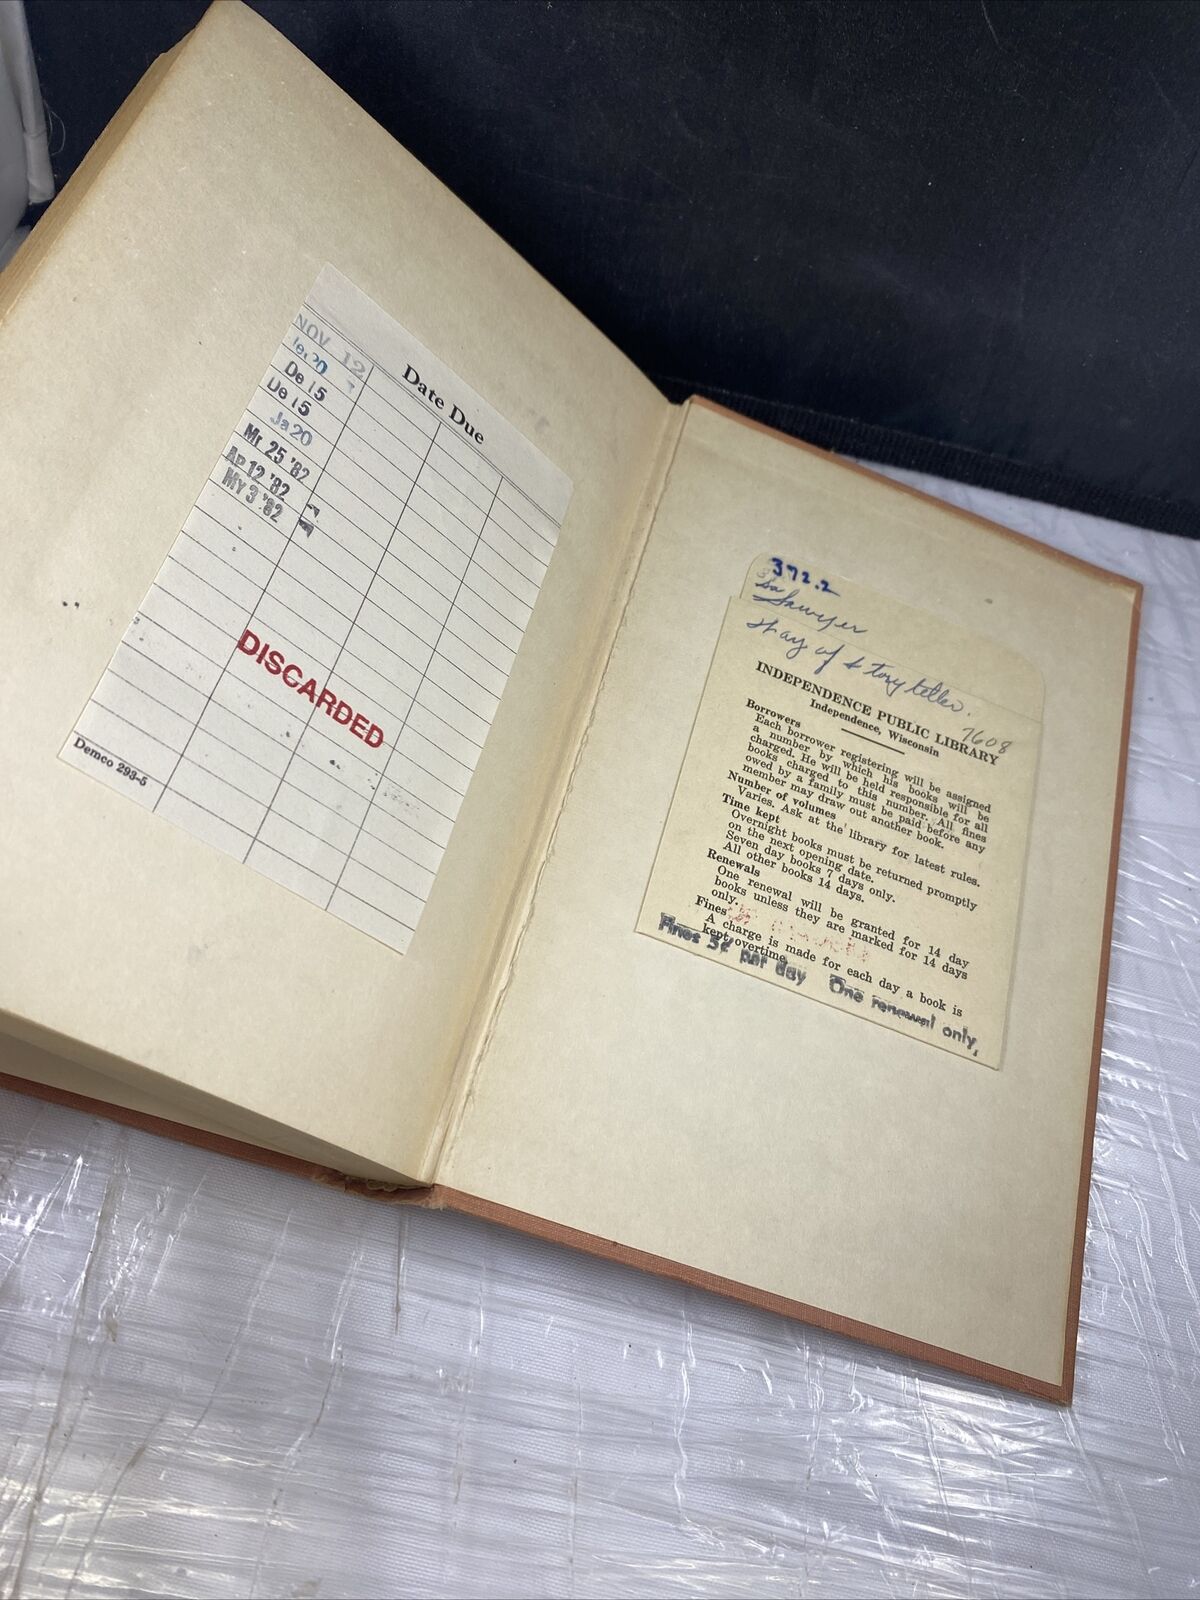 Date Due
NOV 12
De 15
De 15
Ja 20
Mr 25 '82
AP 12 '82
MY 3 '82
DISCARDED
Demco 293-5
372.2
Sa
Sawyer
Way of Storyteller.
7608
INDEPENDENCE PUBLIC LIBRARY
Independence, Wisconsin
Borrowers
Each borrower registering will be assigned
a number by which his books will be
charged. He will be held responsible for all
books charged to this number. All fines
owed by a family must be paid before any
member may draw out another book.
Number of volumes
Varies. Ask at the library for latest rules.
Time kept
Overnight books must be returned promptly
on the next opening date.
Seven day books 7 days only.
All other books 14 days.
Renewals
One renewal will be granted for 14 day
books unless they are marked for 14 days
only.
Fines
A charge is made for each day a book is
kept overtime.
Fines 5¢ per day One renewal only,